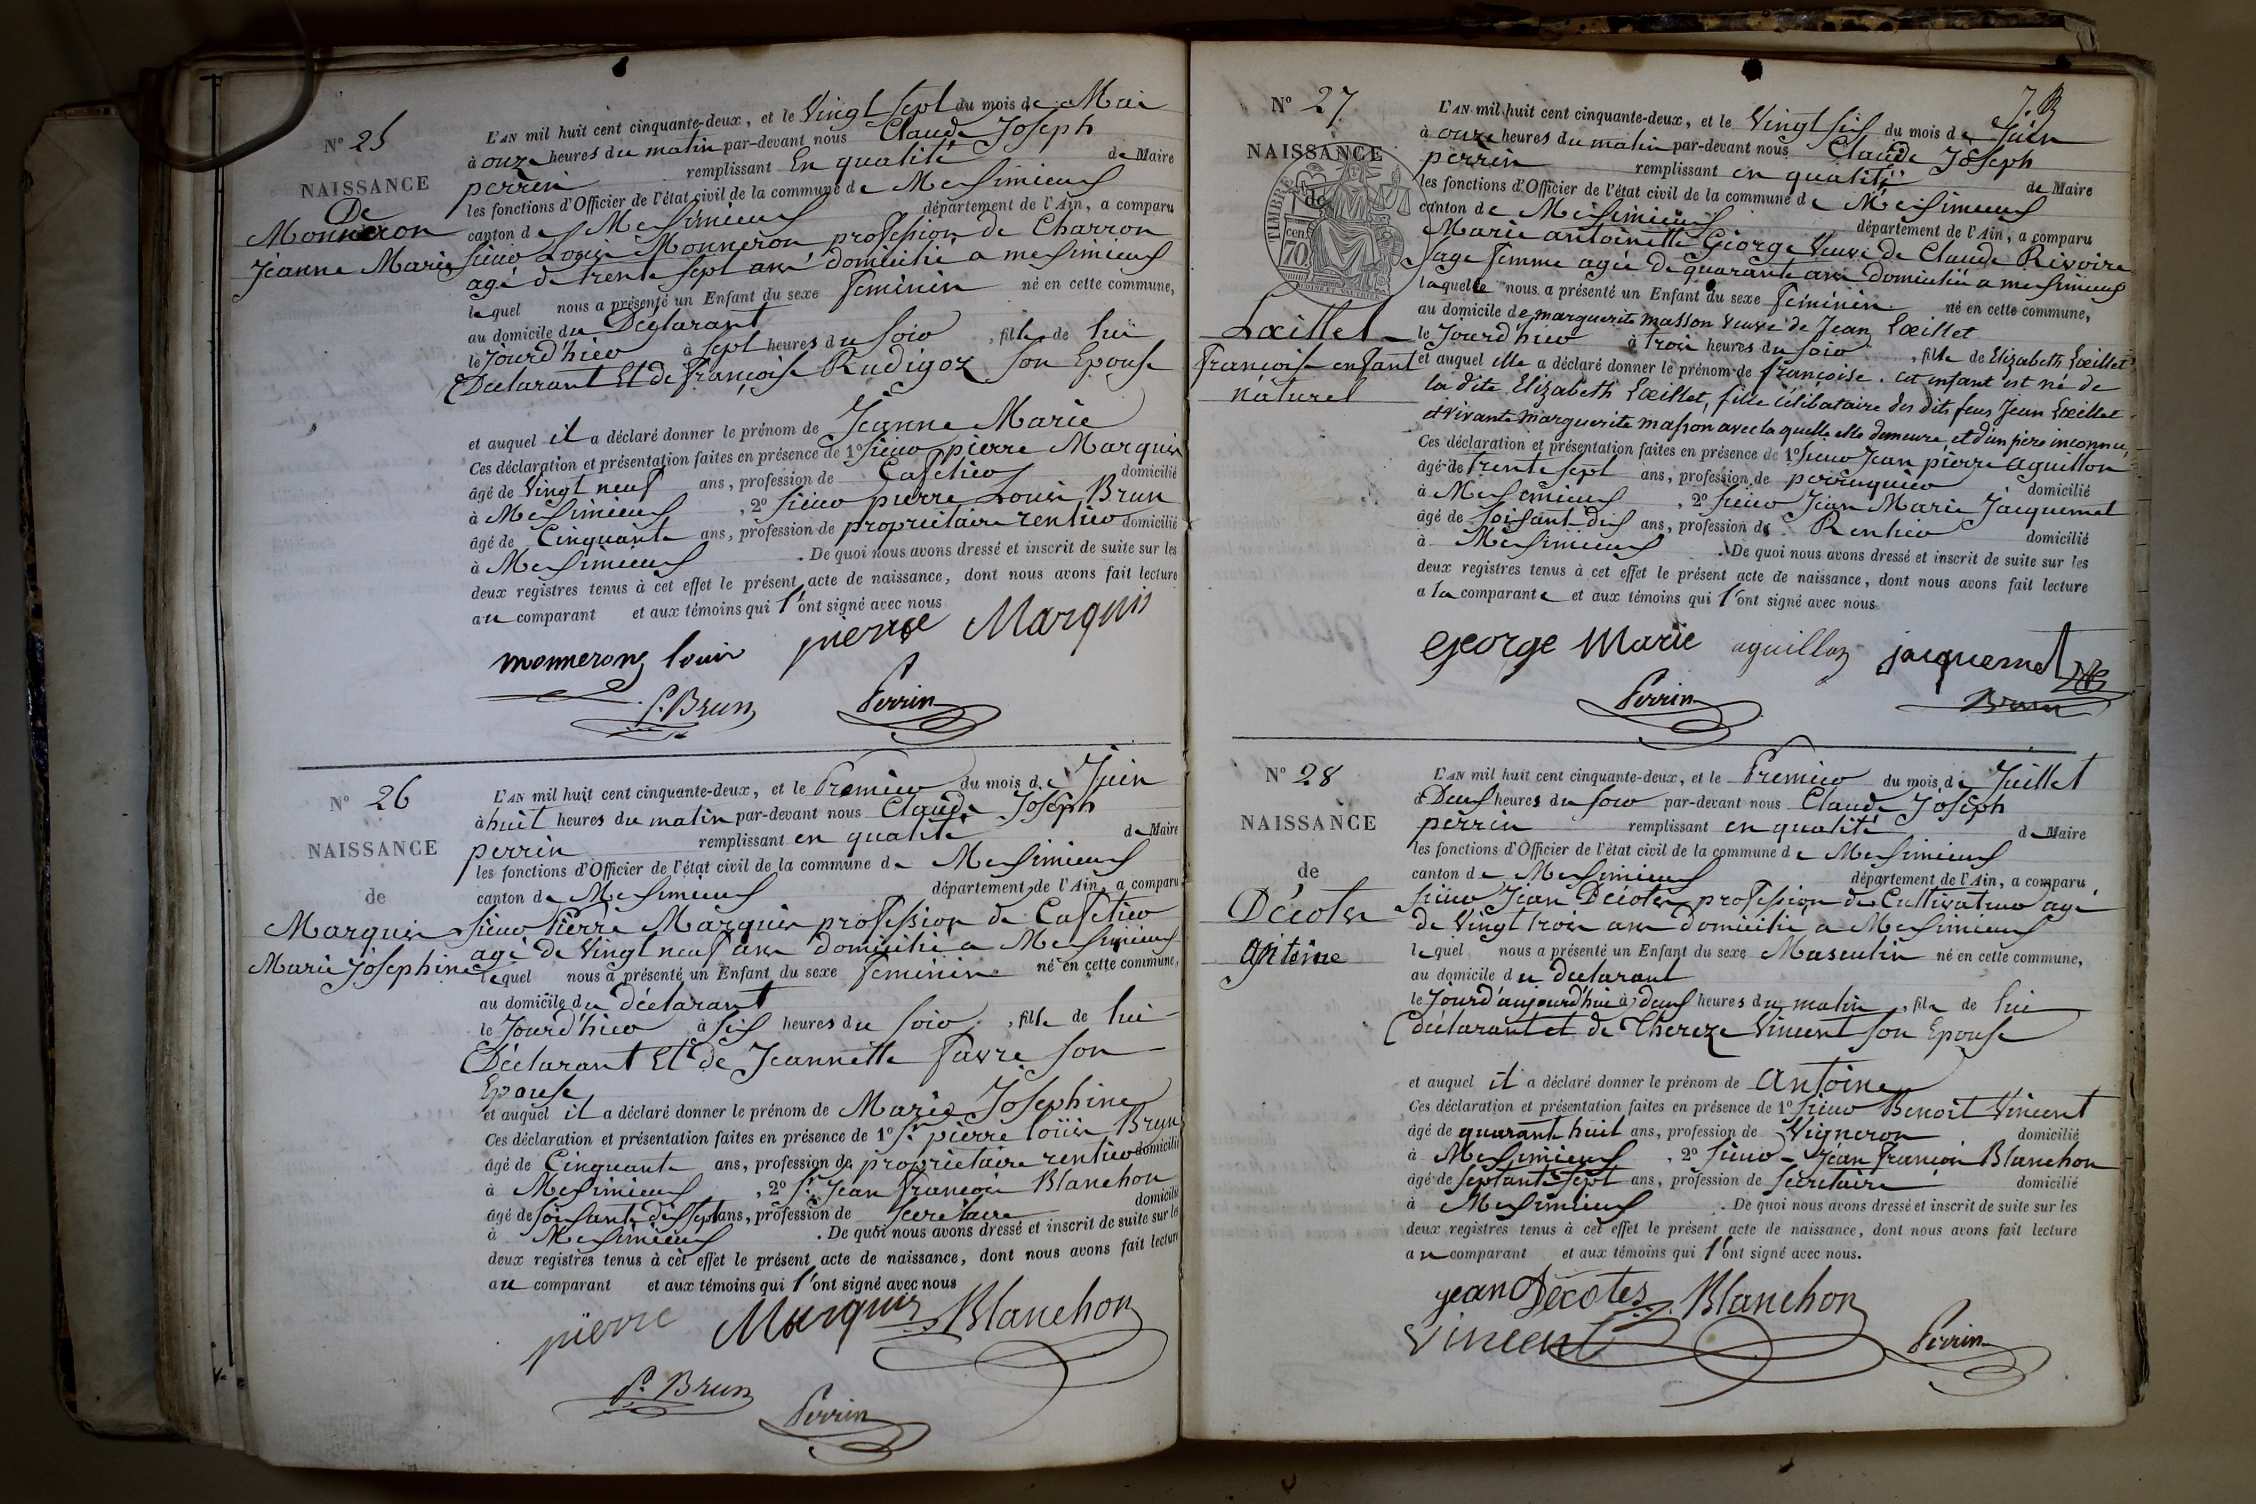 N° 25
NAISSANCE
De
Monneron
Jeanne Marie
L'AN mil huit cent cinquante-deux, et le Vingt sept du mois de Mai
à onze heures du matin par-devant nous Claude Joseph
perrin remplissant En qualité de Maire
les fonctions d'Officier de l'état civil de la commune de Meximieux
canton de Meximieux département de l'Ain, a comparu
sieur Louis Monneron profession de Charron
agé de trente sept ans domicilié a meximieux
lequel nous a présenté un Enfant du sexe feminin né en cette commune,
au domicile du Déclarant
le Jourd'hier à sept heures du soir, fille de lui
Déclarant Et de françoise Rudigoz son Epouse
et auquel il a déclaré donner le prénom de Jeanne Marie
Ces déclaration et présentation faites en présence de 1° sieur pierre Marquis
âgé de vingt neuf ans, profession de Cafetier domicilié
à Meximieux, 2° sieur pierre Louis Brun
âgé de Cinquante ans, profession de propriétaire rentier domicilié
à Meximieux. De quoi nous avons dressé et inscrit de suite sur les
deux registres tenus à cet effet le présent acte de naissance, dont nous avons fait lecture
au comparant et aux témoins qui l'ont signé avec nous
monneron louis pierre Marquis
P. Brun Perrin
N° 26
NAISSANCE
de
Marquis
Marie Josephine
L'AN mil huit cent cinquante-deux, et le Premier du mois de Juin
à huit heures du matin par-devant nous Claude Joseph
perrin remplissant en qualité de Maire
les fonctions d'Officier de l'état civil de la commune de Meximieux
canton de Meximieux département de l'Ain, a comparu
sieur Pierre Marquis profession de Cafetier
agé de vingt neuf ans domicilié a Meximieux
lequel nous a présenté un Enfant du sexe feminin né en cette commune,
au domicile du déclarant
le Jourd'hier à six heures du soir, fille de lui
Déclarant Et de Jeannette Favre son
Epouse
et auquel il a déclaré donner le prénom de Marie Josephine
Ces déclaration et présentation faites en présence de 1° Sr pierre louis Brun
âgé de Cinquante ans, profession de propriétaire rentier domicilié
à Meximieux, 2° Sr Jean françois Blanchon
âgé de soixante dix sept ans, profession de secretaire domicilié
à Meximieux. De quoi nous avons dressé et inscrit de suite sur les
deux registres tenus à cet effet le présent acte de naissance, dont nous avons fait lecture
au comparant et aux témoins qui l'ont signé avec nous
pierre Marquis Blanchon
P. Brun
Perrin
N° 27
NAISSANCE
de
TIMBRE
cent.
70
Lœillet
francoise enfant
naturel
L'AN mil huit cent cinquante-deux, et le Vingt six du mois de Juin
à onze heures du matin par-devant nous Claude Joseph
perrin remplissant en qualité de Maire
les fonctions d'Officier de l'état civil de la commune de Meximieux
canton de Meximieux département de l'Ain, a comparu
Marie antoinette George Veuve de Claude Rivoire
sage femme agée de quarante ans domiciliée a meximieux
laquelle nous a présenté un Enfant du sexe féminin né en cette commune,
au domicile de marguerite masson veuve de Jean Lœillet
le Jourd'hier à trois heures du soir, fille de Elizabeth Lœillet
et auquel elle a déclaré donner le prénom de françoise. cet enfant est né de
la dite Elizabeth Lœillet, fille célibataire des dits feus Jean Lœillet
et vivante marguerite masson avec la quelle elle demeure, et d'un père inconnu,
Ces déclaration et présentation faites en présence de 1° sieur Jean pierre aguillon
âgé de trente sept ans, profession de perruquier domicilié
à Meximieux, 2° sieur Jean Marie Jacquemet
âgé de soixante dix ans, profession de Rentier domicilié
à Meximieux. De quoi nous avons dressé et inscrit de suite sur les
deux registres tenus à cet effet le présent acte de naissance, dont nous avons fait lecture
a la comparante et aux témoins qui l'ont signé avec nous
George Marie aguillon jacquemet
Perrin Brun
N° 28
NAISSANCE
de
Décotes
antoine
L'AN mil huit cent cinquante-deux, et le Premier du mois de Juillet
à Deux heures du soir par-devant nous Claude Joseph
perrin remplissant en qualité de Maire
les fonctions d'Officier de l'état civil de la commune de Meximieux
canton de Meximieux département de l'Ain, a comparu
sieur Jean Décotes profession de Cultivateur agé
de vingt trois ans domicilié a Meximieux
lequel nous a présenté un Enfant du sexe Masculin né en cette commune,
au domicile du declarant
le Jourd'aujourd'hui à deux heures du matin, fils de lui
déclarant et de Thereze Vincent son Epouse
et auquel il a déclaré donner le prénom de antoine
Ces déclaration et présentation faites en présence de 1° sieur Benoit Vincent
âgé de quarante huit ans, profession de Vigneron domicilié
à Meximieux, 2° sieur Jean francois Blanchon
âgé de septante sept ans, profession de secretaire domicilié
à Meximieux. De quoi nous avons dressé et inscrit de suite sur les
deux registres tenus à cet effet le présent acte de naissance, dont nous avons fait lecture
au comparant et aux témoins qui l'ont signé avec nous.
jean Décotes Blanchon
Vincent Perrin